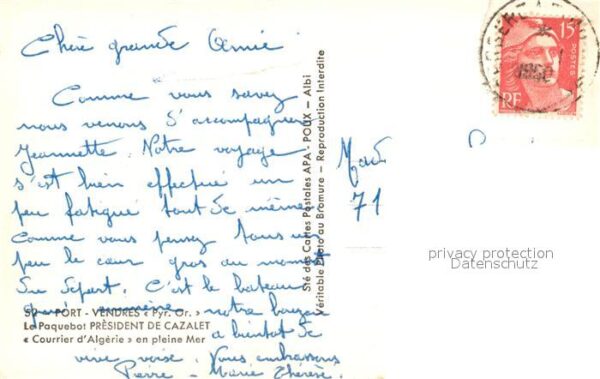 Chère grande Amie
Comme vous savez
nous venons d'accompagner
Jeannette. Notre voyage
s'est bien effectué un
peu fatigué tout de même
comme vous pensez tous un
peu le cœur gros au moment
du départ. C'est le bateau
notre
à bientôt de
vive voix. Vous embrassons
Pierre - Marie Thérèse.
52 - PORT - VENDRES « Pyr. Or. »
Le Paquebot PRÉSIDENT DE CAZALET
« Courrier d'Algérie » en pleine Mer
Sté des Cartes Postales APA - POUX - Albi
Véritable Photo au Bromure - Reproduction Interdite
Mad
71
15F
POSTES
RF
1950
privacy protection
Datenschutz